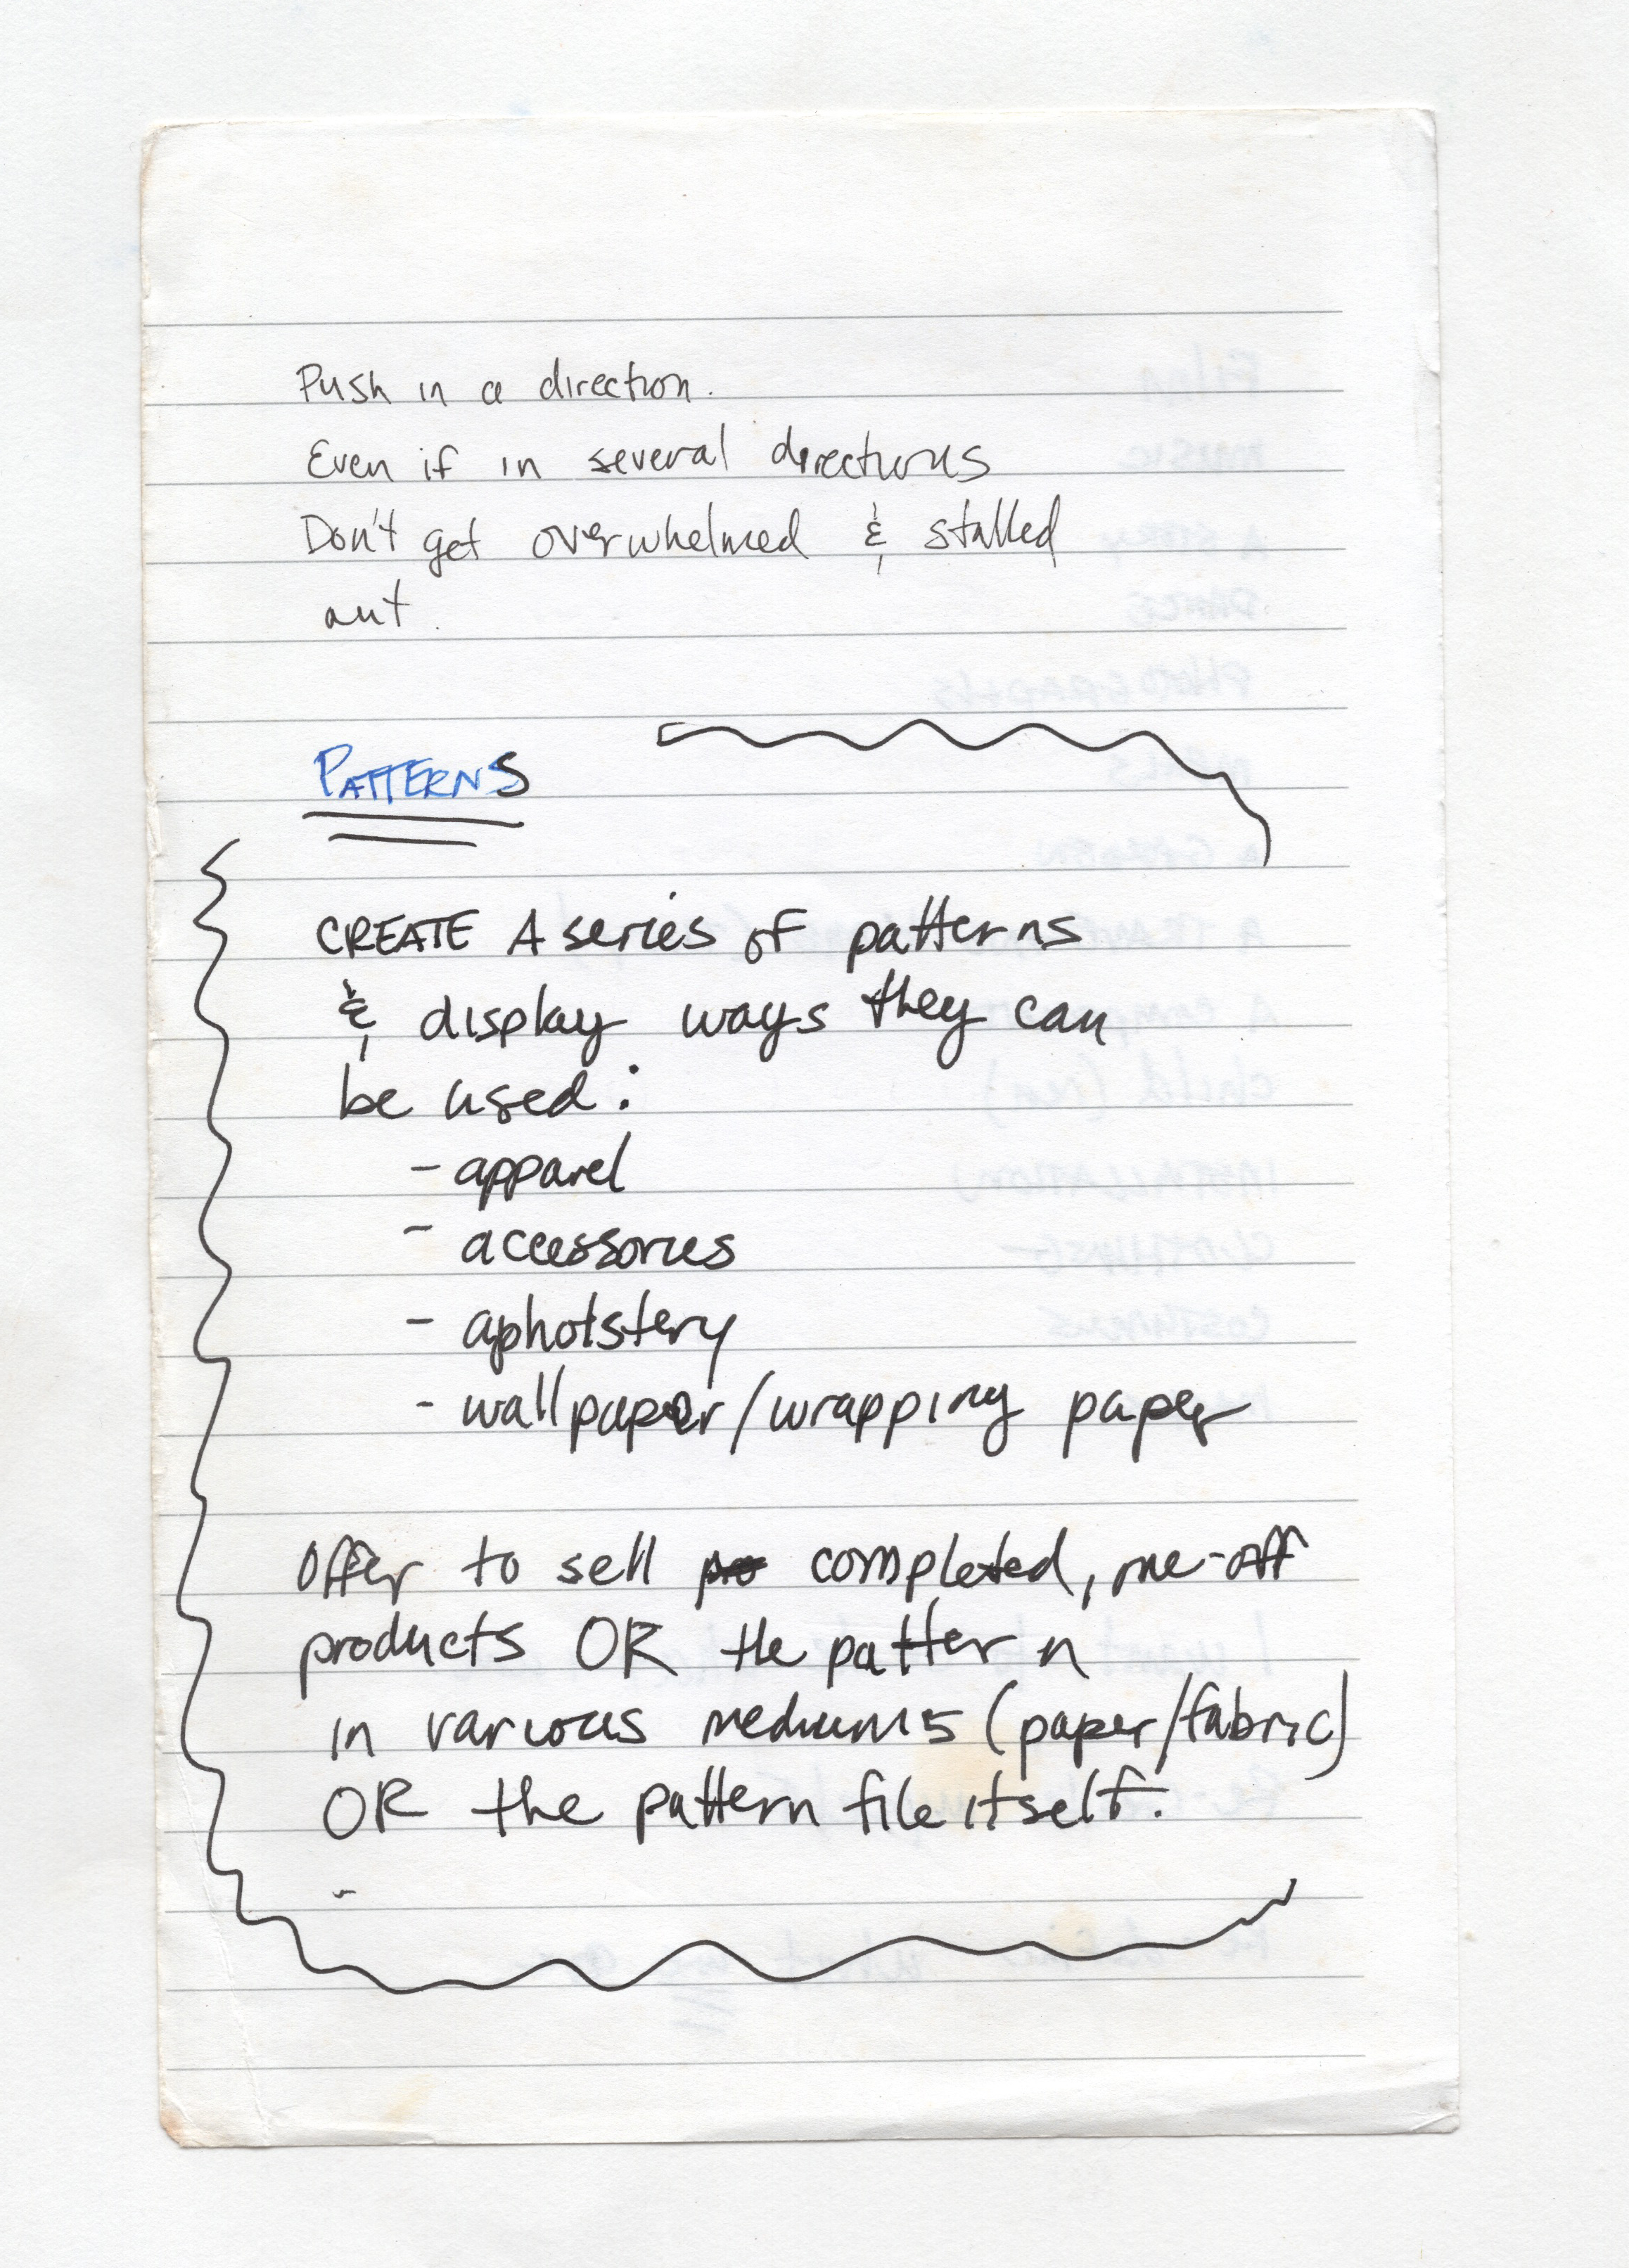 Push in a direction.
Even if in several directions
Don't get overwhelmed & stalled
out.
PATTERNS
CREATE A series of patterns
& display ways they can
be used:
- apparel
- accessories
- apholstery
- wallpaper/wrapping paper
Offer to sell completed, one-off
products OR the pattern
in various mediums (paper/fabric)
OR the pattern file itself.
-